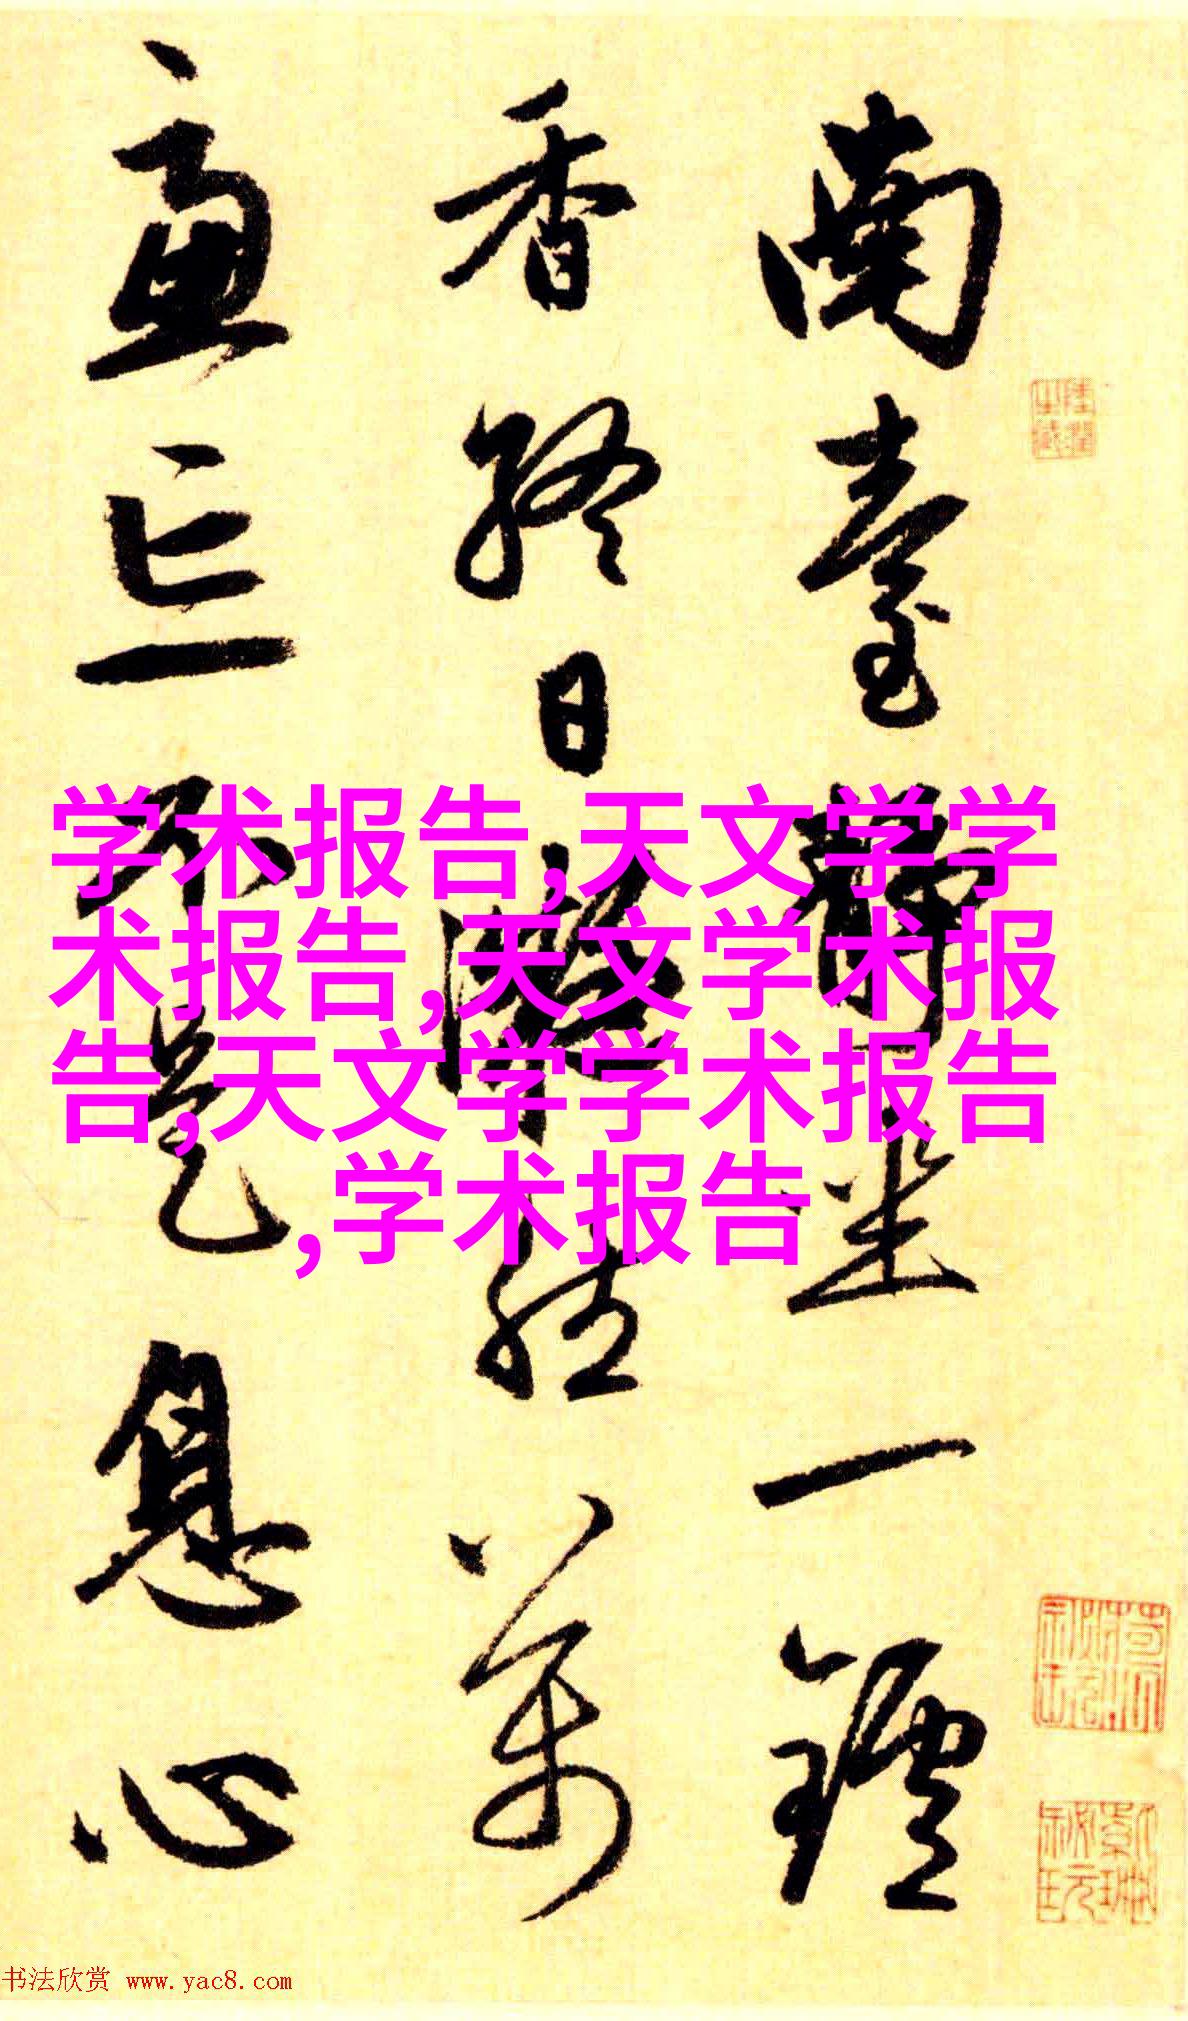 南臺靜坐一鑪
香終日凝然萬
慮忘不是息心
学术报告,天文学学
术报告,天文学术报
告,天文学学术报告
,学术报告
书法欣赏 www.yac8.com